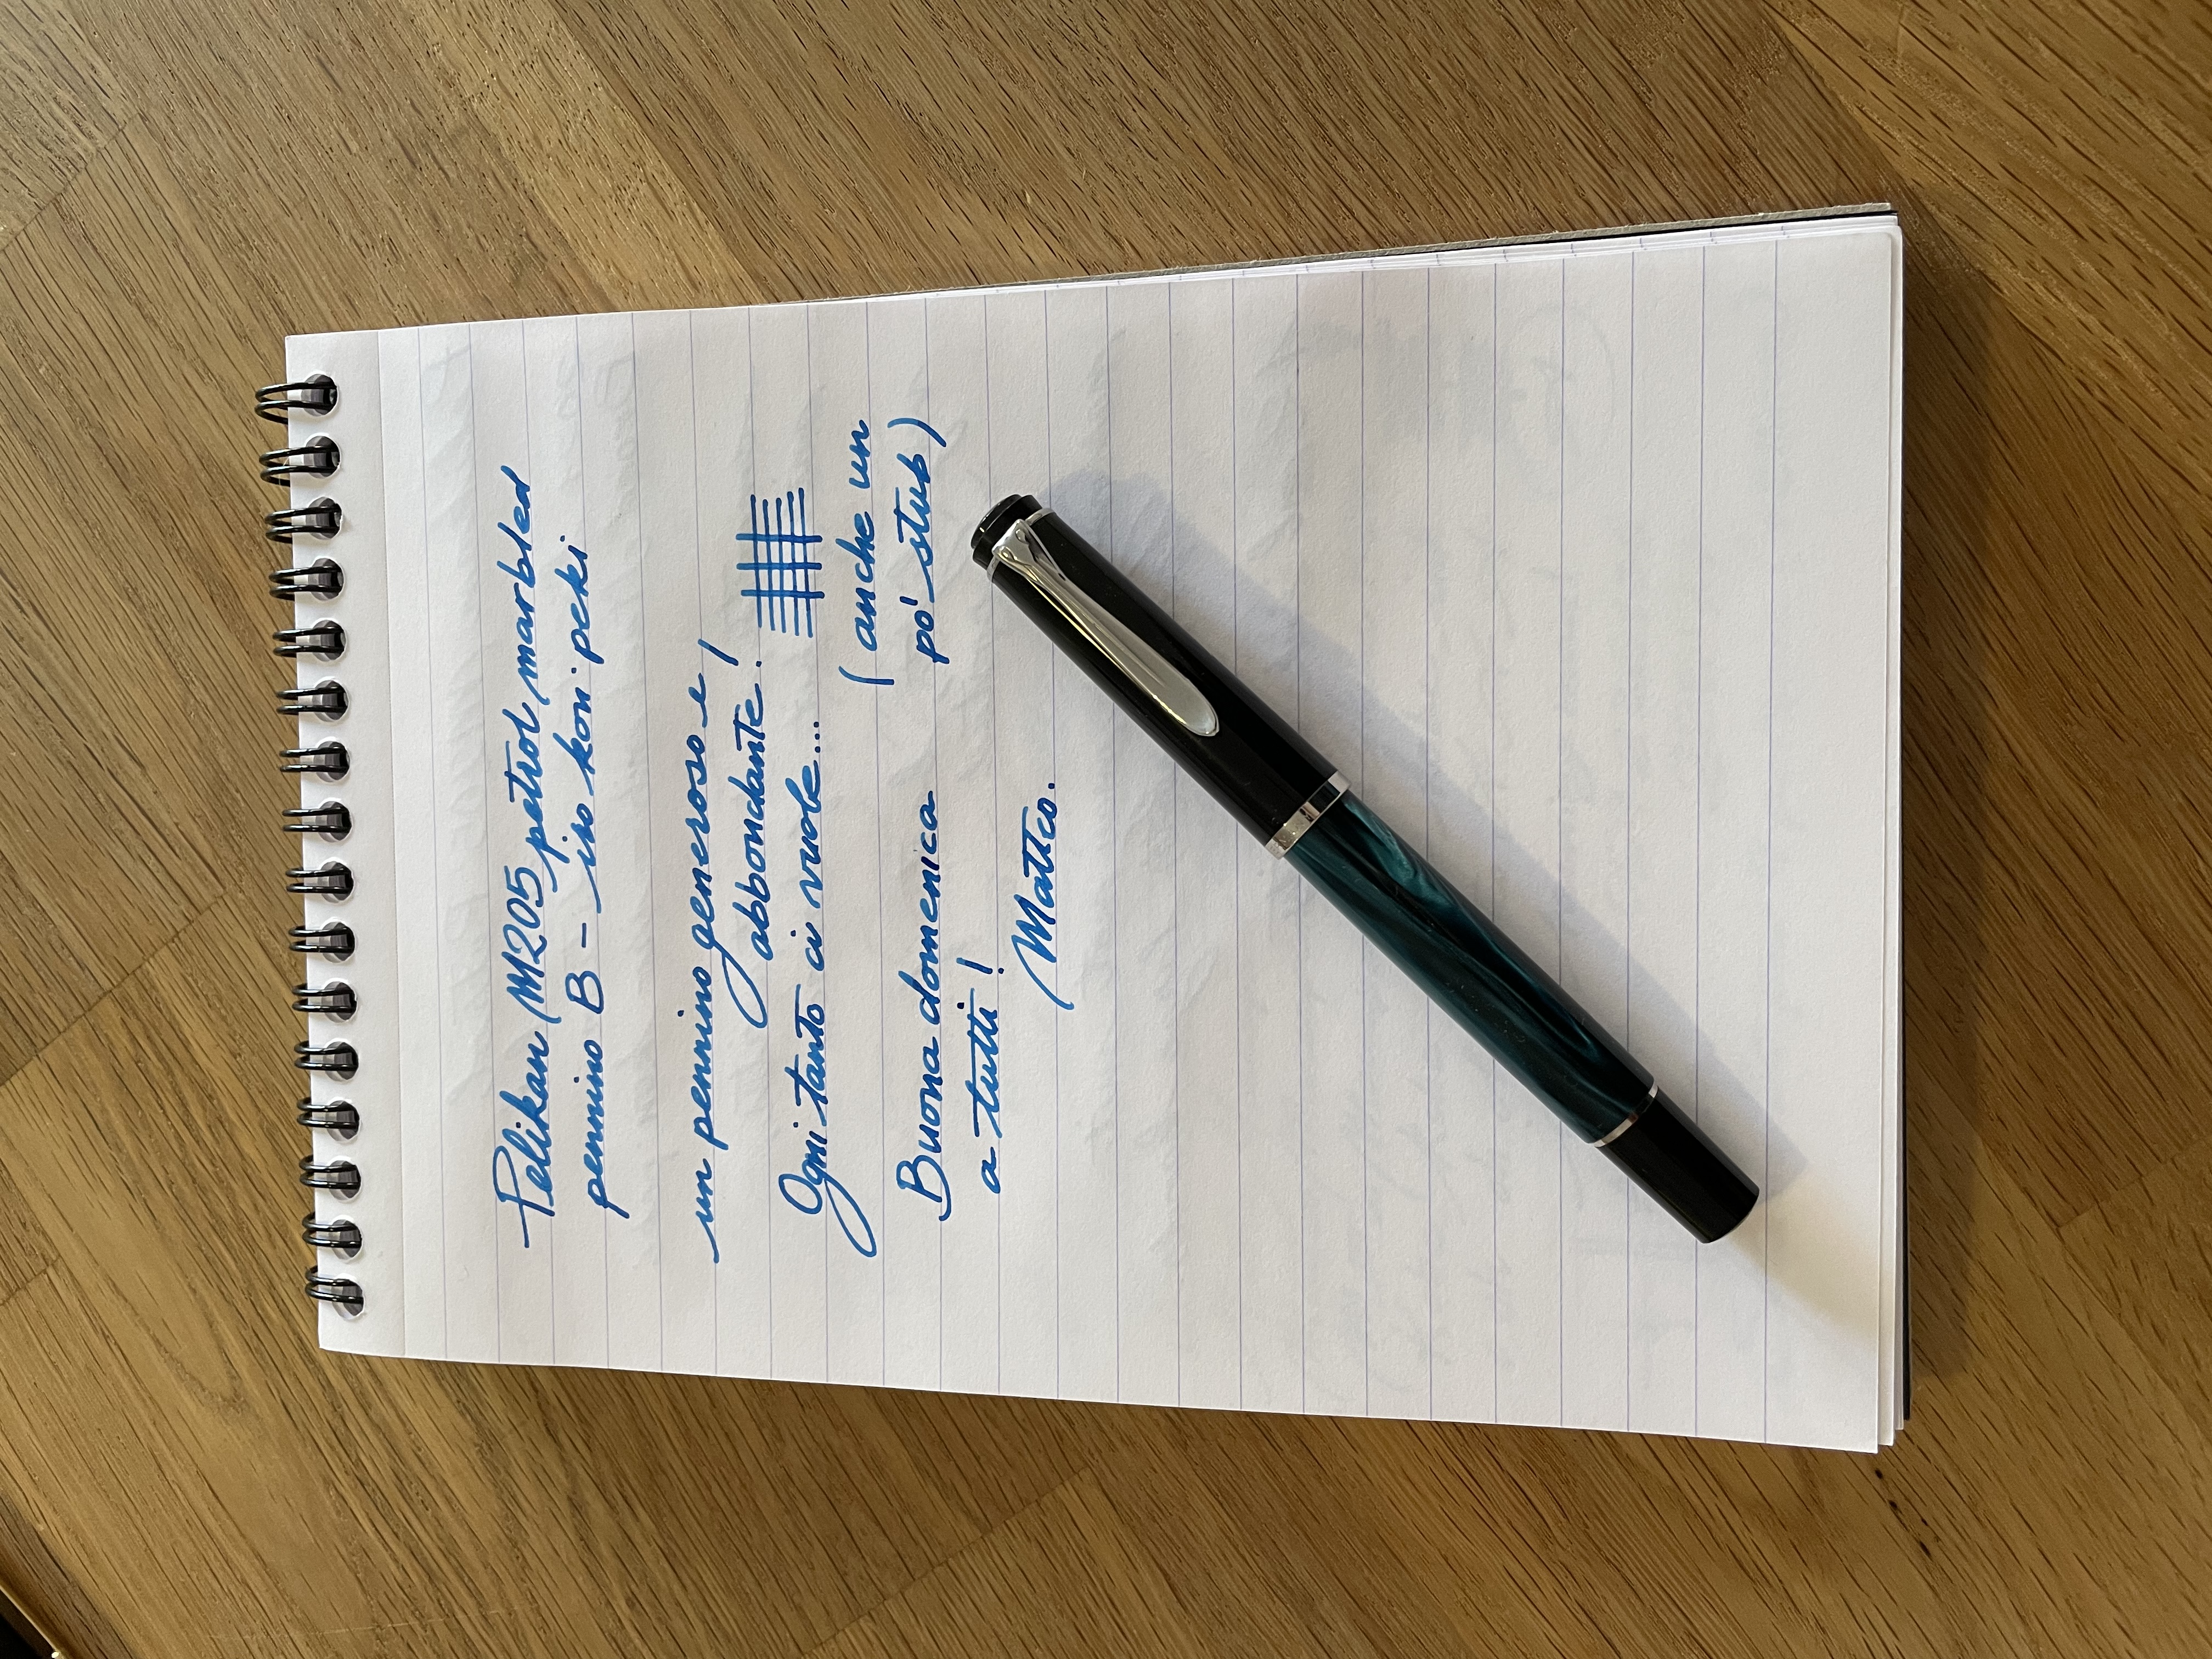 Pelikan M205 petrol marbled
pennino B - iro kon peki
un pennino generoso e
abbondante!
Ogni tanto ci vuole...
(anche un
po' stub)
Buona domenica
a tutti!
Matteo.